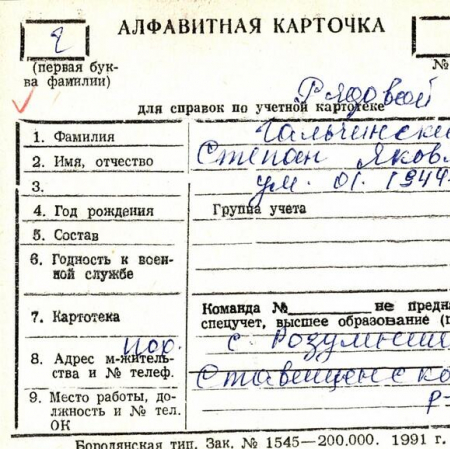 АЛФАВИТНАЯ КАРТОЧКА
(первая бук-
ва фамилии)
№
Рядовой
для справок по учетной картотеке
1. Фамилия Гальчински
2. Имя, отчество Степан Яковл
3. ум. 01.1944
4. Год рождения Группа учета
5. Состав
6. Годность к воен-
ной службе
7. Картотека Команда № не предна
спецучет, высшее образование (п
8. Адрес м-житель-
ства и № телеф. с.
Ставищенско
9. Место работы, до-
лжность и № тел. р-
ОК
Бородянская тип. Зак. № 1545—200.000. 1991 г.